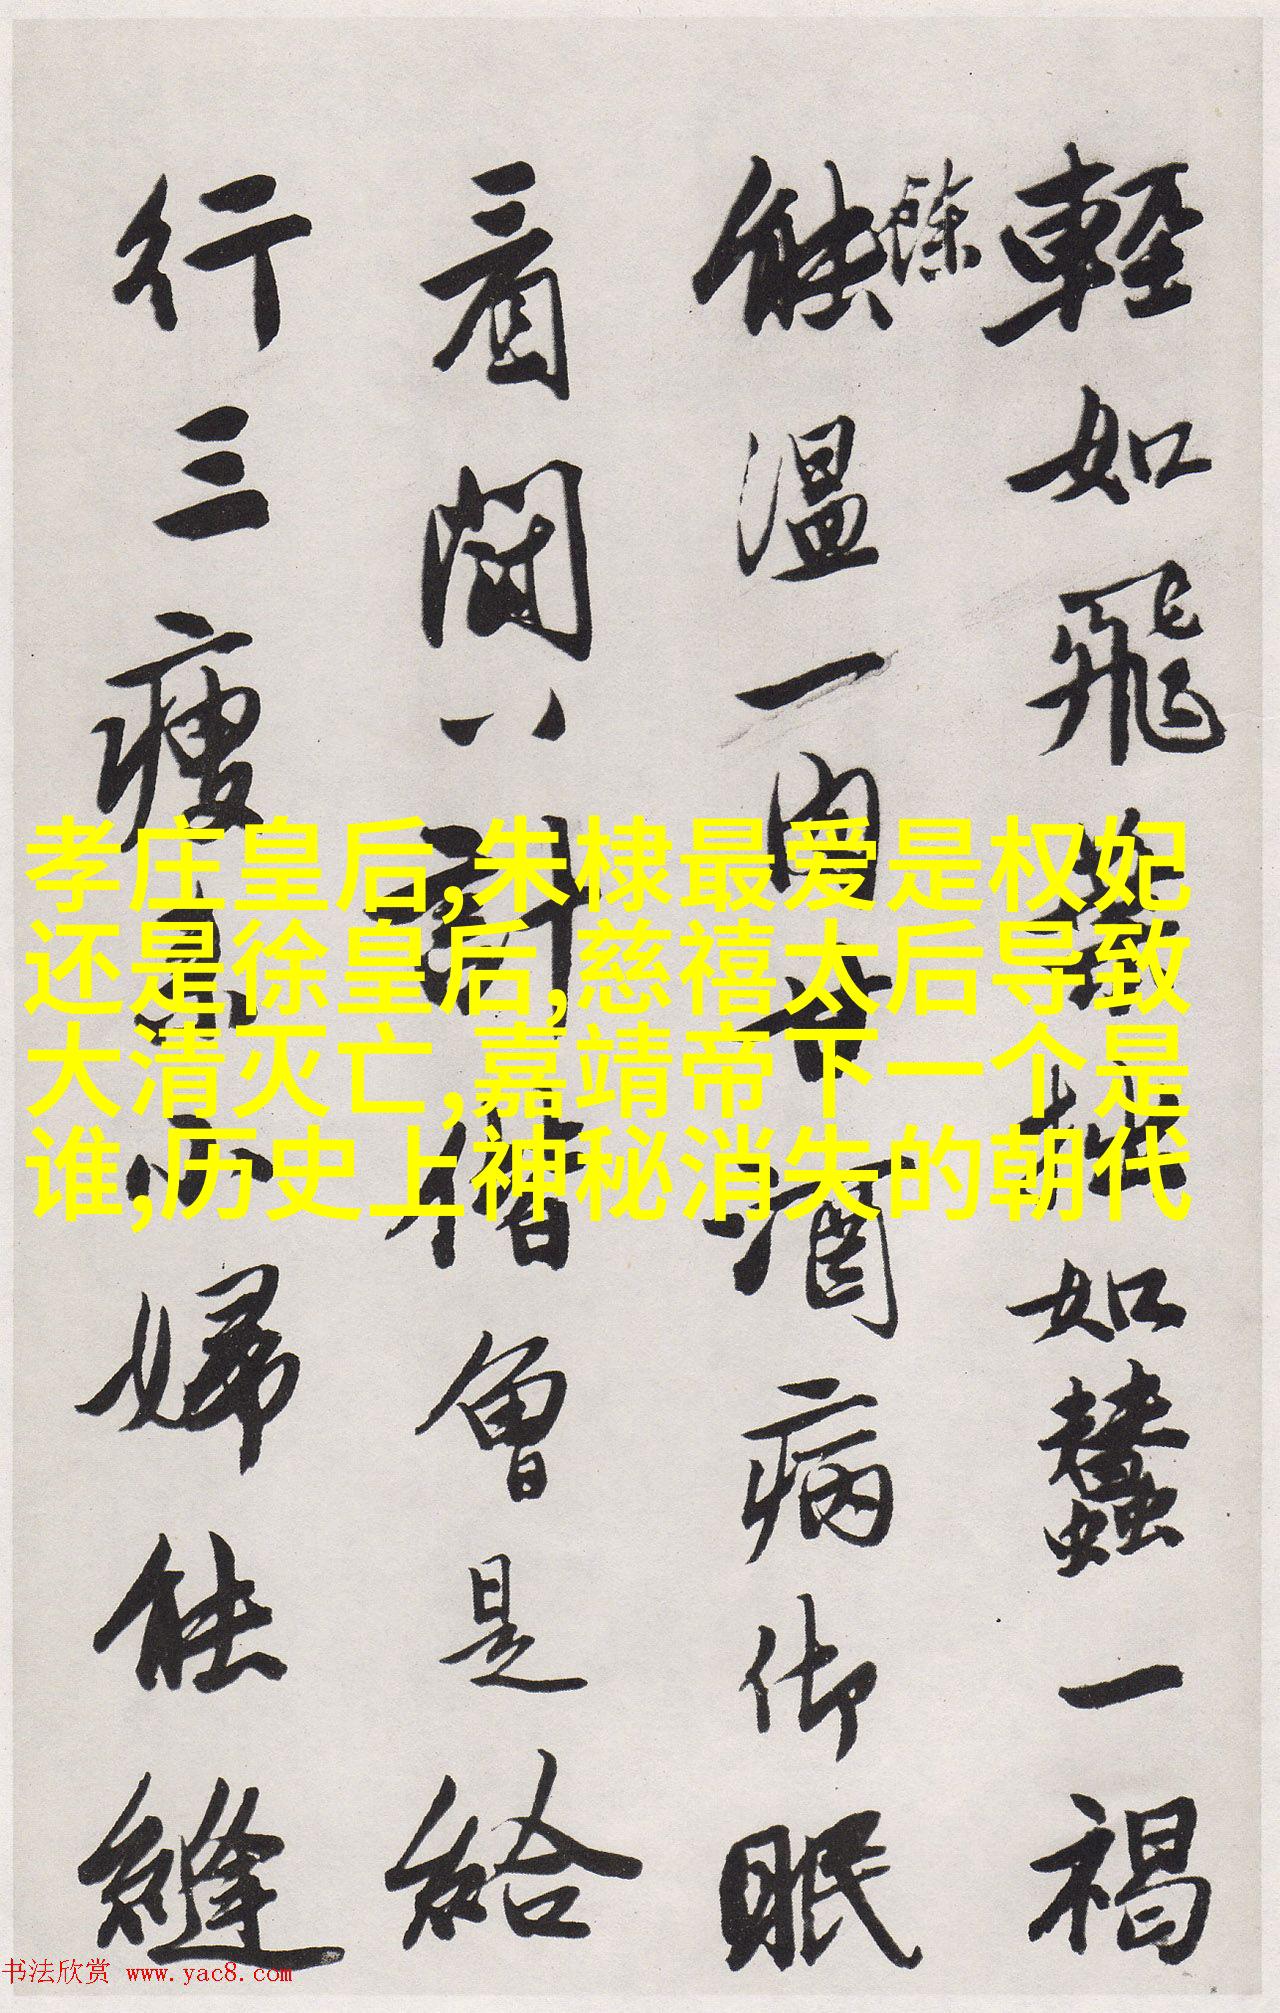 輕如飛如蠶一褐
餘
能溫一肉酒病眠
看是給
行三瘦婦能縫
孝庄皇后,朱棣最爱是权妃
还是徐皇后,慈禧太后导致
大清灭亡,嘉靖帝下一个是
谁,历史上神秘消失的朝代
书法欣赏 www.yac8.com